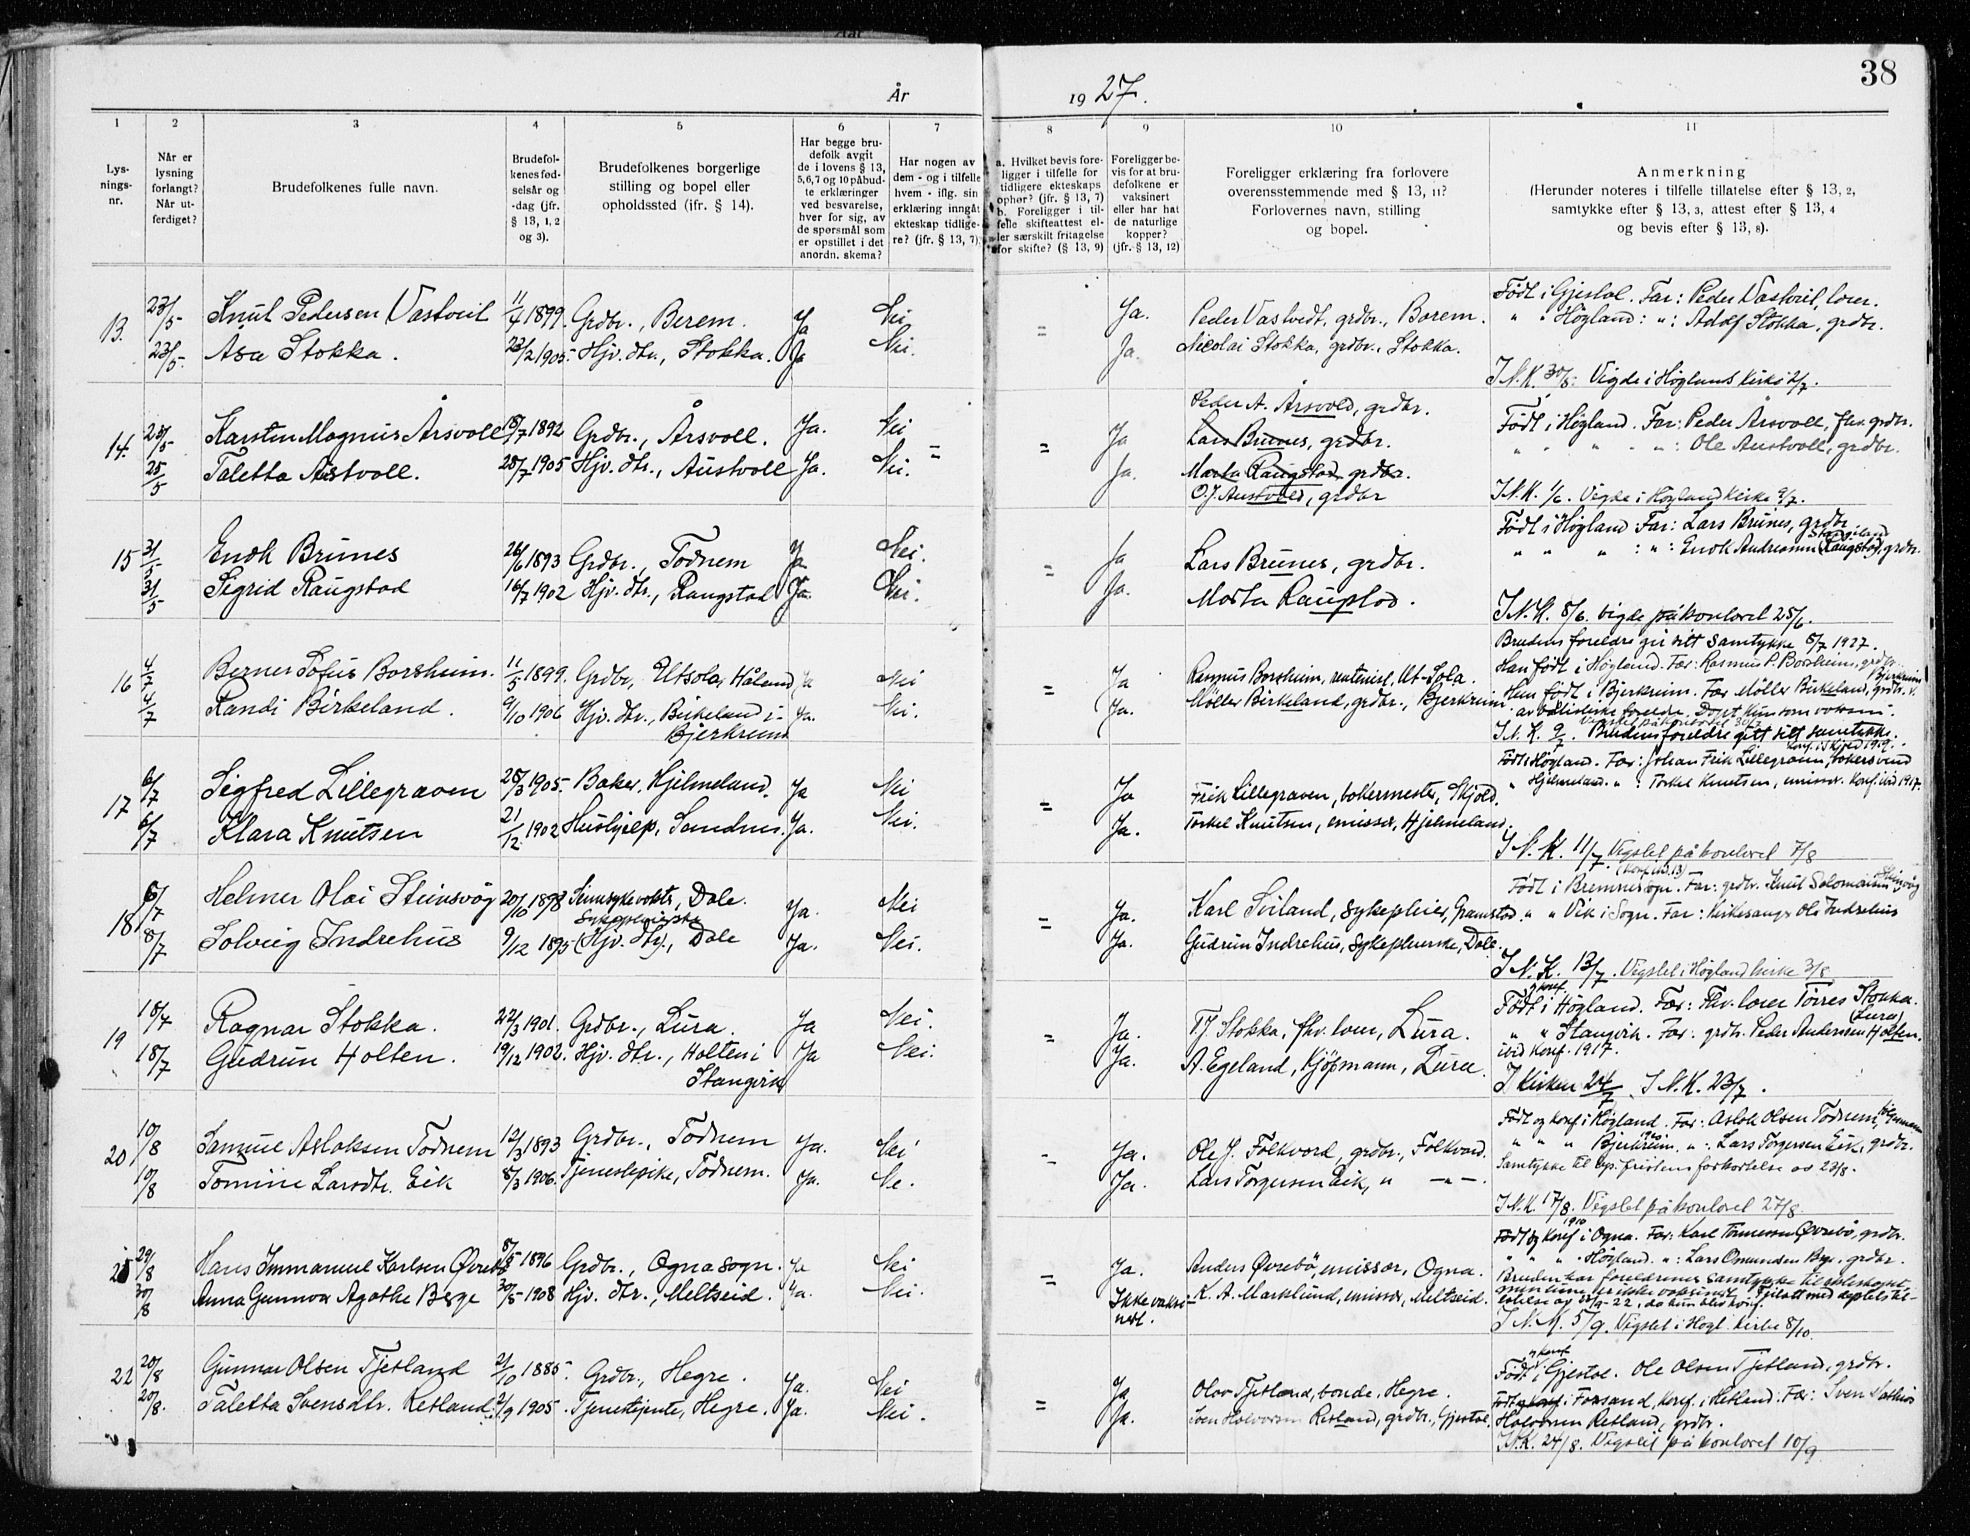 38
År 1927.
1 2 3 4 5 6 7 8 9 10 11
Lysningsnr.
Når er lysning forlangt? Når utferdiget?
Brudefolkenes fulle navn.
Brudefolkenes fødselsår og -dag (jfr. § 13, 1, 2 og 3).
Brudefolkenes borgerlige stilling og bopel eller opholdssted (ifr. § 14).
Har begge brudefolk avgit de i lovens § 13, 5,6,7 og 10 påbudte erklæringer ved besvarelse, hver for sig, av de spørsmål som er opstillet i det anordn. skema?
Har nogen av dem - og i tilfelle hvem - iflg. sin erklæring inngåt ekteskap tidligere? (jfr. § 13, 7)
a. Hvilket bevis foreligger i tilfelle for tidligere ekteskaps ophør? (jfr. § 13, 7) b. Foreligger i tilfelle skifteattest eller særskilt fritagelse for skifte? (§ 13, 9)
Foreligger bevis for at brudefolkene er vaksinert eller har hat de naturlige kopper? (jfr. § 13, 12)
Foreligger erklæring fra forlovere overensstemmende med § 13, 11? Forlovernes navn, stilling og bopel.
Anmerkning (Herunder noteres i tilfelle tillatelse efter § 13, 2, samtykke efter § 13, 3, attest efter § 13, 4 og bevis efter § 13, 8).
13. 23/5 Knut Pedersen Vastveit 11/4 1899. Grdbr., Berem. Ja Nei = Ja. Peder Vastvedt, grdbr., Borem. Født i Gjestal. Far: Peder Vastveit, lærer.
23/5. Åsa Stokka. 23/2 1905. Hjv. dtr., Stokka. Ja Nei. Ja. Nicolai Stokka, grdbr., Stokka. " " Høgland: ": Adolf Stokka, grdbr.
I N. K. 30/5: Vigde i Høglands kirke 2/7.
Peder A. Årsvold, grdbr.
14. 23/5 Karsten Magnus Årsvoll 18/7 1892 Grdbr., Årsvoll. Ja. Nei = Ja Lars Brunes, grdbr. Født i Høgland. Far: Peder Årsvoll, fhv. grdbr.
25/5 Taletta Austvoll. 28/7 1905 Hjv. dtr., Austvoll Ja. Nei. Ja. Marta Raugstad grdbr. " " " " ": Ole Austvoll, grdbr.
O.J. Austvold, grdbr I.N.K. 1/6. Vigde i Høgland kirke 9/7.
15 31/5 Enok Brunes 26/6 1893 Grdbr., Todnem Ja Nei. = Ja Lars Brunes, grdbr. Født i Høgland Far: Lars Brunes, grdbr.
31/5 Sigrid Raugstad 16/7 1902 Hjv. dtr., Raugstad Ja. Nei. Ja. Marta Raugstad. " " " : ": Enok Andreassen Raugstad, grdbr.
I N. K. 8/6. Vigde på kontoret 25/6.
Brudens foreldre gir sitt samtykke 5/7 1927.
16 4/7 Berner Sofus Borsheim. 11/5 1899. Grdbr, Utsola, Håland Ja Nei = Ja Rasmus Borsheim, rentenist, Ut-Sola. Han født i Høgland. Far: Rasmus P. Borsheim, grdbr.
4/7 Randi Birkeland. 9/10 1906 Hjv. dtr., Birkeland i Bjerkreim Ja. Nei. Ja. Møller Birkeland, grdbr., Bjerkreim. Hun født i Bjerkreim. Far Møller Birkeland, grdbr.
I N. K. 9/7. Brudens foreldre gitt sitt samtykke.
17 6/7 Sigfred Lillegraven 25/3 1905. Baker, Hjelmeland. Ja Nei = Ja Erik Lillegraven, bakermester, Skjold. Født i Høgland. Far: Johan Erik Lillegraven, bakersvend
6/7 Klara Knutsen 21/12 1902 Hushjelp, Sandnes. Ja. Nei. Ja. Torkel Knutsen, emissær, Hjelmeland. " Hjelmeland. " : Torkel Knutsen, emissær. Konf. ibid 1917.
I N. K. 11/7. Vigslet på kontoret 7/8
18 6/7 Helmer Olai Steinsvåg 20/10 1898 Sinnsykevokter, Dale. Ja. Nei = Ja. Karl Sviland, sykepleier, Gramstad. Født i Bremnes sogn. Far: grdbr. Knut Salomonsen Steinsvåg
8/7 Solveig Indrehus 9/12 1895 Sykepleierske (Hjv. dtr.), Dale Ja. Nei. Ja. Gudrun Indrehus, Sykepleierske, Dale. " " Vik i Sogn. Far: kirkesanger Ole Indrehus
I N. K. 13/7. Vigslet i Høgland kirke 3/8
19 18/7 Ragnar Stokka. 22/3 1901. Grdbr., Lura. Ja Nei. = Ja. T.J. Stokka, fhv. lærer, Lura. Født i Høgland. Far: Fhv. lærer Tørres Stokka.
18/7 Gudrun Holten. 19/12 1902. Hjv. dtr., Holten i Stangvik Ja Nei. Ja. A. Egeland, Kjøpmann, Lura. " " Stangvik. Far: grdbr. Peder Andersen Holten.
ibid konf. 1917.
I kirken 24/7. I N. K. 23/7.
20 10/8 Samuel Aslaksen Todnem 12/3 1893 Grdbr., Todnem Ja. Nei = Ja. Ole J. Folkvord, grdbr., Folkvord. Født og konf i Høgland. Far: Aslak Olsen Todnem,
10/8 Tomine Larsdtr. Eik 8/3 1906. Tjenestepike, Todnem. Ja. Ne. Ja. Lars Torgersen Eik, " — " —. " " " Bjerkreim, ". Lars Torgersen Eik, grdbr.
Samtykke til lys. fristens forkortelse av 23/8.
I.N.K. 17/8. Vigslet på kontoret 27/8.
21 29/8 Hans Immanuel Karlsen Øvrebø 8/5 1896 Grdbr., Ogna sogn. Ja Nei = Ja. Anders Øvrebø, emissær, Ogna. Født og konf 1910 i Ogna. Far: Karl Tønnesen Øvrebø, grdbr.
30/8 Anna Gunnvor Agathe Berge 30/5 1908 Hjv. dtr., Meltseid. Ja. Nei. Ikke vaksinert. K. A. Marklund, emissær, Meltseid. " " " Høgland. ": Lars Osmundsen Berge, grdbr.
Bruden har foreldrenes samtykke til ekteskapet
I N. K. 5/9. Vigslet i Høgl. kirke 8/10.
22 20/8 Gunnar Olsen Tjetland 21/10 1885. Grdbr., Hegre. Ja. Nei = Ja Olav Tjetland, bonde, Hegre. Født og konf. i Gjestal. Ole Olsen Tjetland, grdbr.
20/8. Taletta Svensdtr. Retland. 21/9 1905. Tjenestejente, Hegre. Ja. Nei. Ja. Sven Halvorsen Retland, grdbr., Gjestal. Født og konf i Forsand, konf. i Hetland: Far: Sven
Halvorsen Retland, grdbr.
I.N.K. 24/8. Vigslet på kontoret 10/9